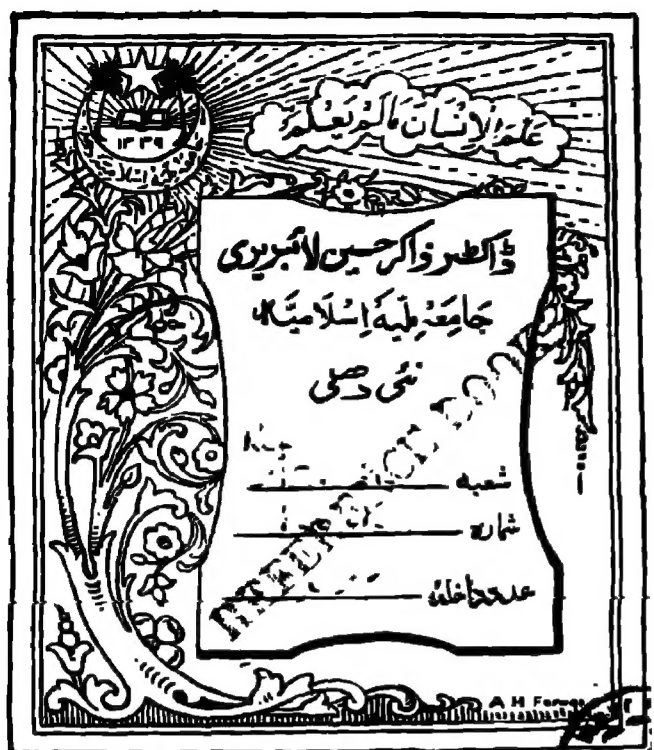 عَلَّمَ الْإِنْسَانَ مَا لَمْ يَعْلَمْ
۱۳۳۹
ڈاکٹر ذاکر حسین لائبریری
جامعہ ملیہ اسلامیہ
نئی دہلی
شعبہ
شمارہ
عدد داخلہ
REFERENCE BOOK
A H